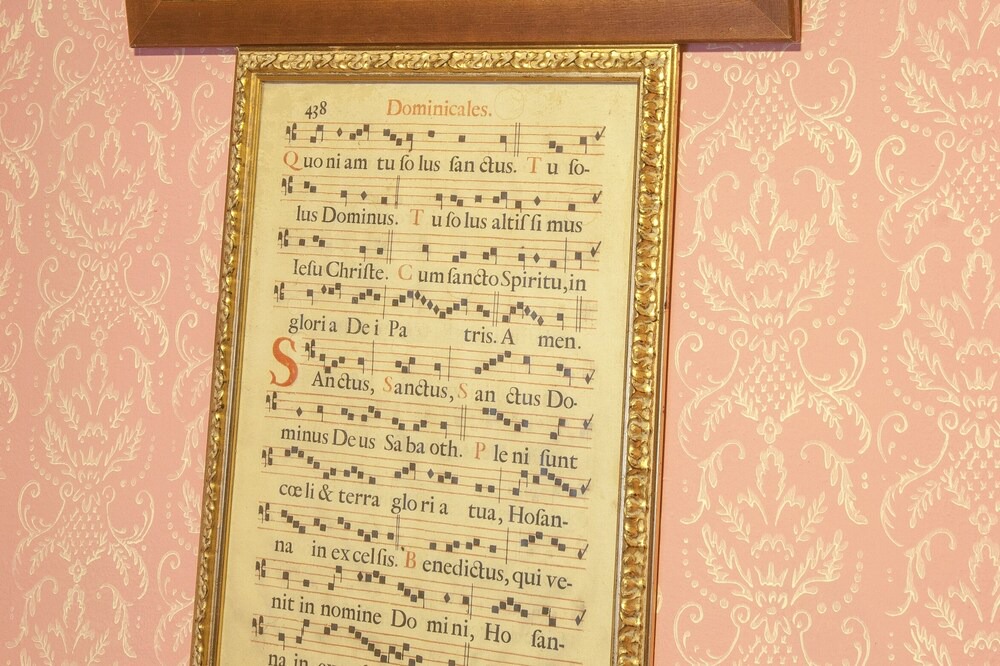 438 Dominicales.
Quoniam tu ſolus ſanctus. Tu ſo-
lus Dominus. Tu ſolus altiſſimus
Ieſu Chriſte. Cum ſancto Spiritu, in
gloria Dei Patris. Amen.
SAnctus, Sanctus, Sanctus Do-
minus Deus Sabaoth. Pleni ſunt
cœli & terra gloria tua, Hoſan-
na in excelſis. Benedictus, qui ve-
nit in nomine Domini, Hoſan-
na in